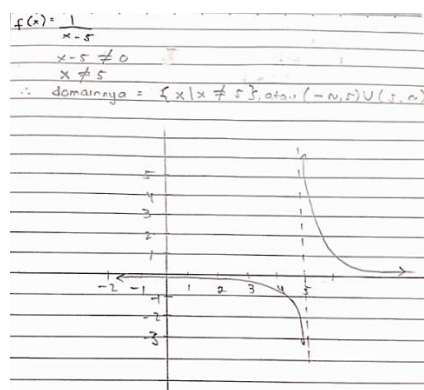 f(x) = 1/(x-5)
x-5 ≠ 0
x ≠ 5
∴ domainnya = {x|x ≠ 5}, atau (-∞,5) ∪ (5,∞)
5
4
3
2
1
-2 -1 1 2 3 4 5
-1
-2
-3